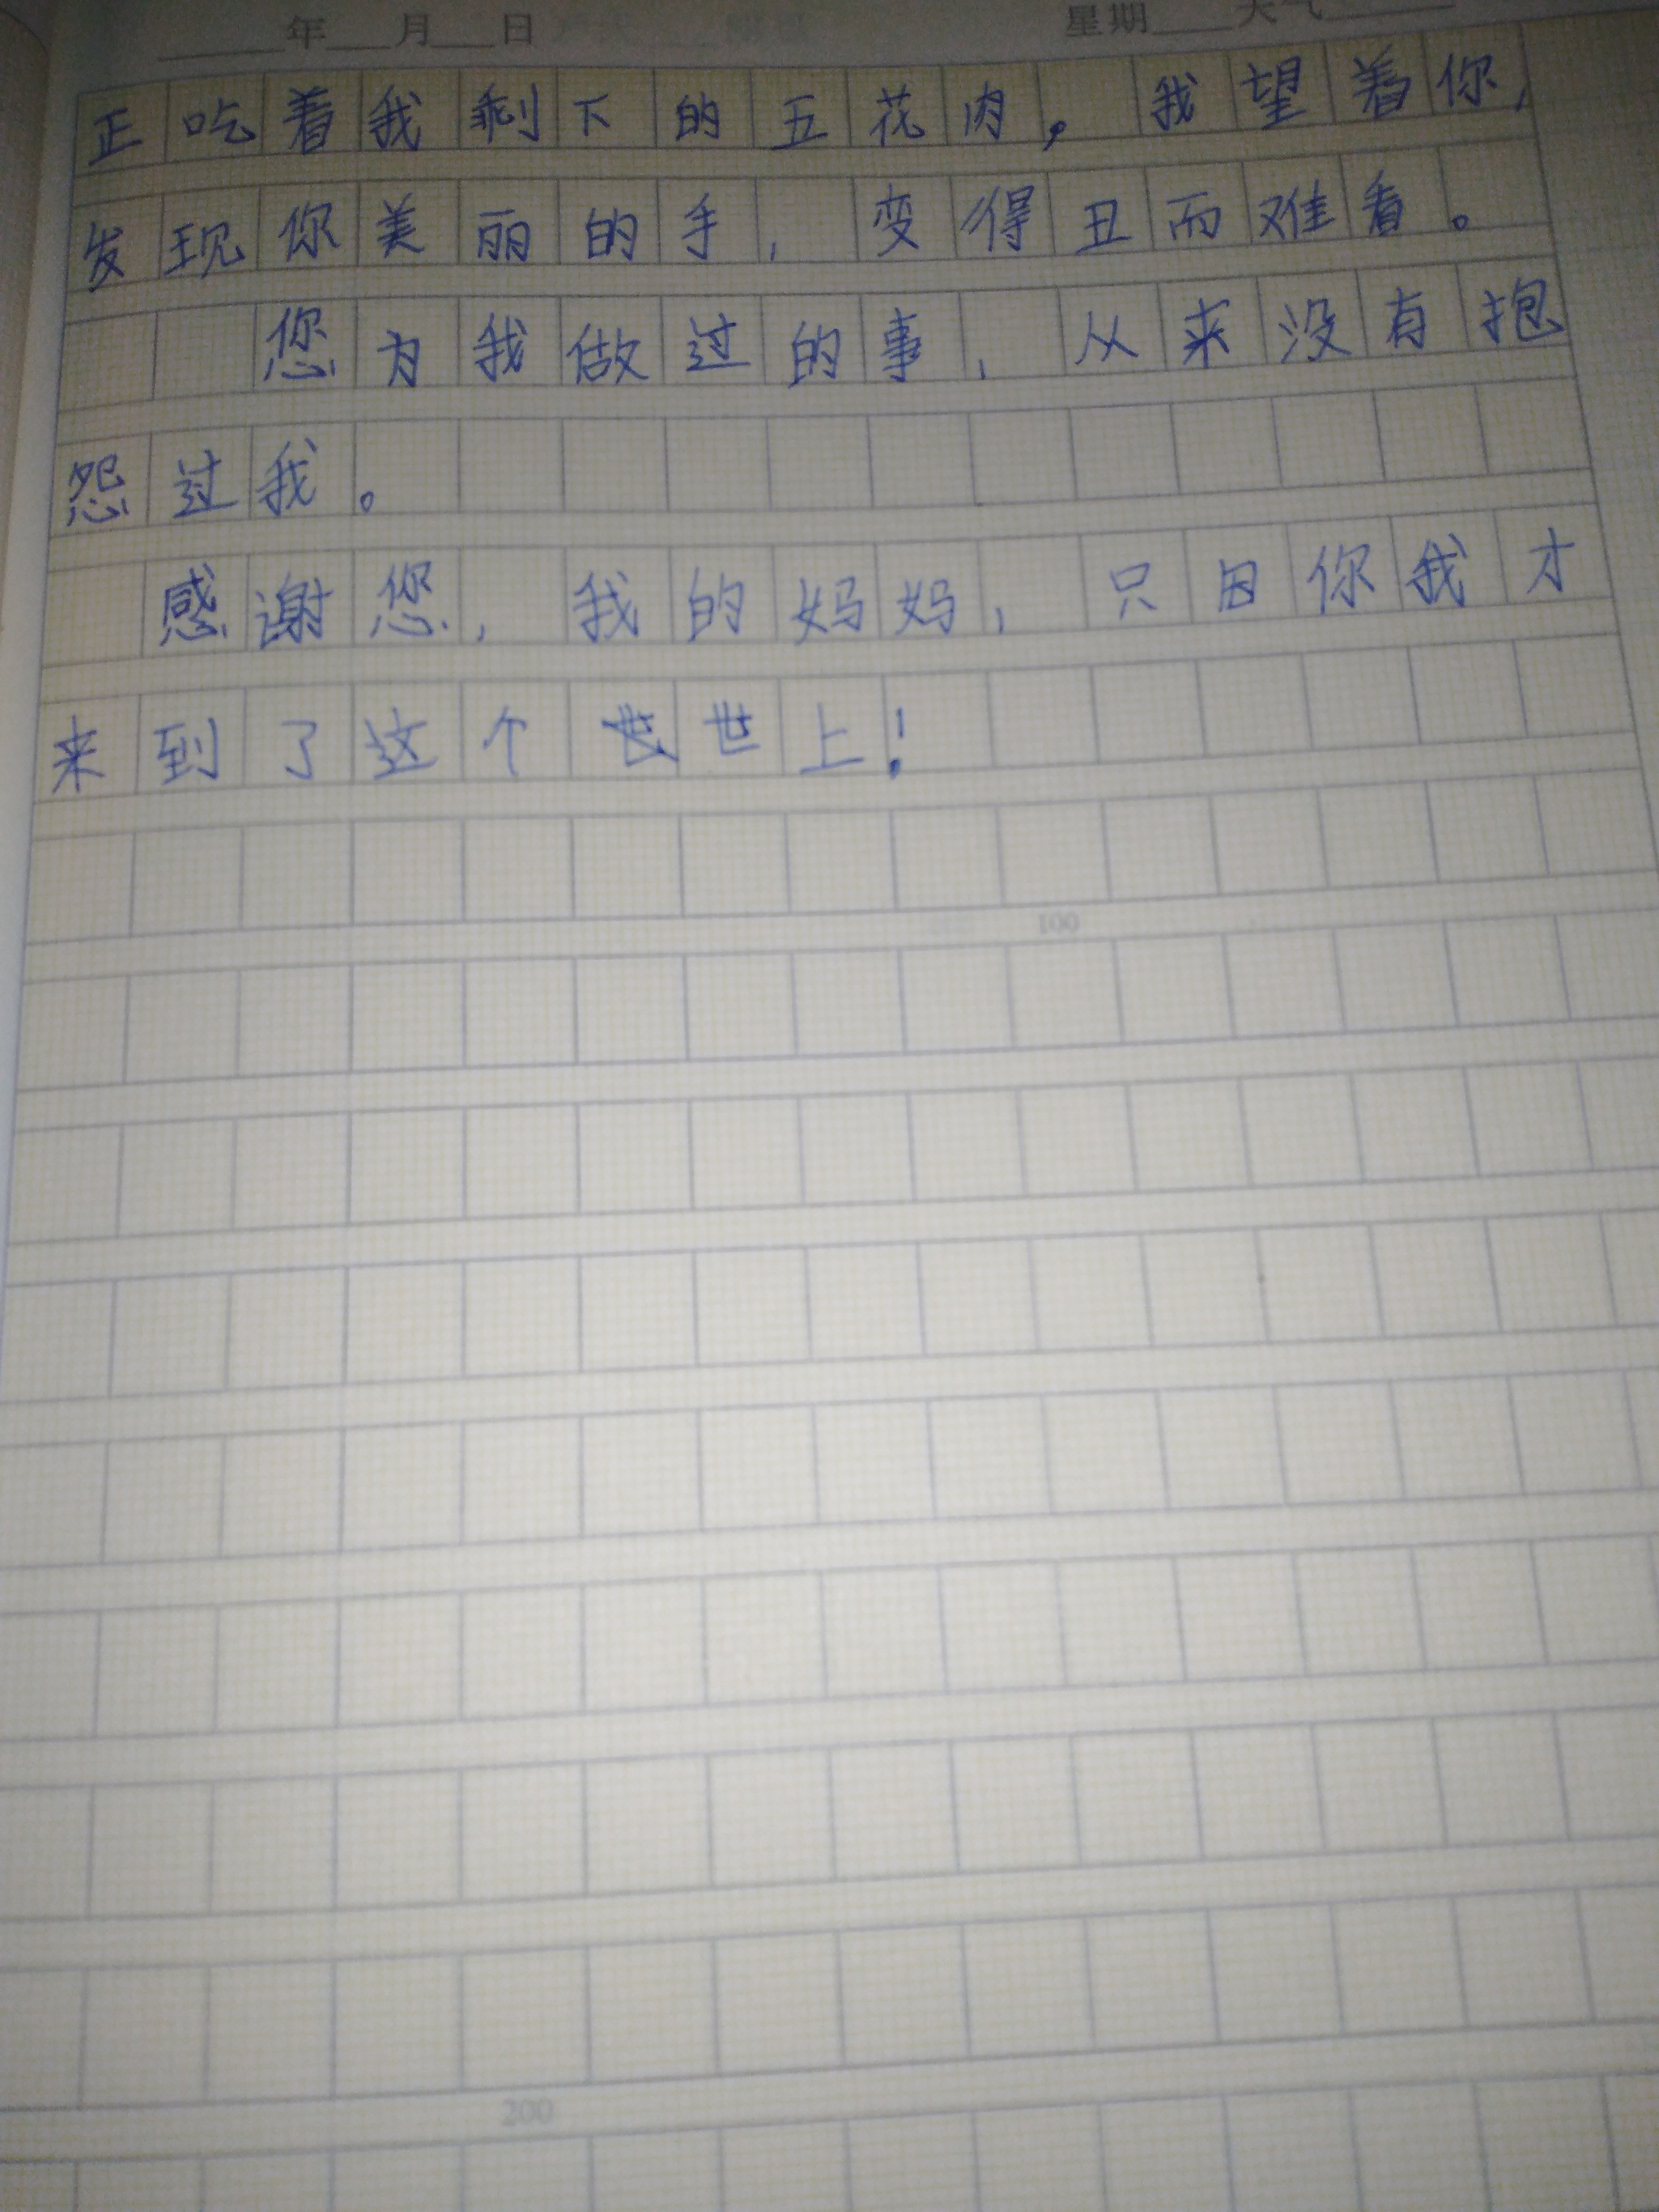 年 月 日 星期 天气
正吃着我剩下的五花肉，我望着你，
发现你美丽的手，变得丑而难看。
您为我做过的事，从来没有抱
怨过我。
感谢您，我的妈妈，只因你我才
来到了这个世上！
100
200